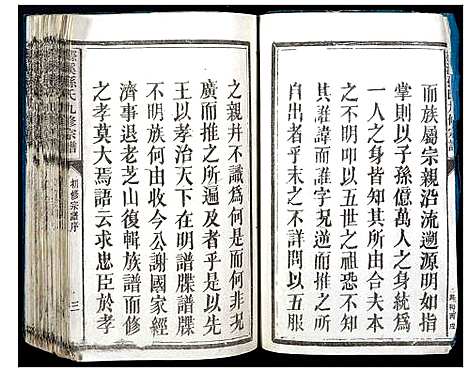 而族屬宗親沿流遡源明如指
掌則以子孫億萬人之身統爲
一人之身皆知其所由合夫本
同宗不明或以五世之祖恐不知
其誰諱而誰字問高曾而不知
自出者有之不詳問以五服
之親并不識爲何等
廣而推之所遍及者乎是以先
王以孝治天下在明譜牒譜牒
不明族何由收今公謝國家經
濟事退老芝山復輯族譜而修
之孝莫大焉語云求忠臣於孝
孫氏九修宗譜
初修宗譜序
三